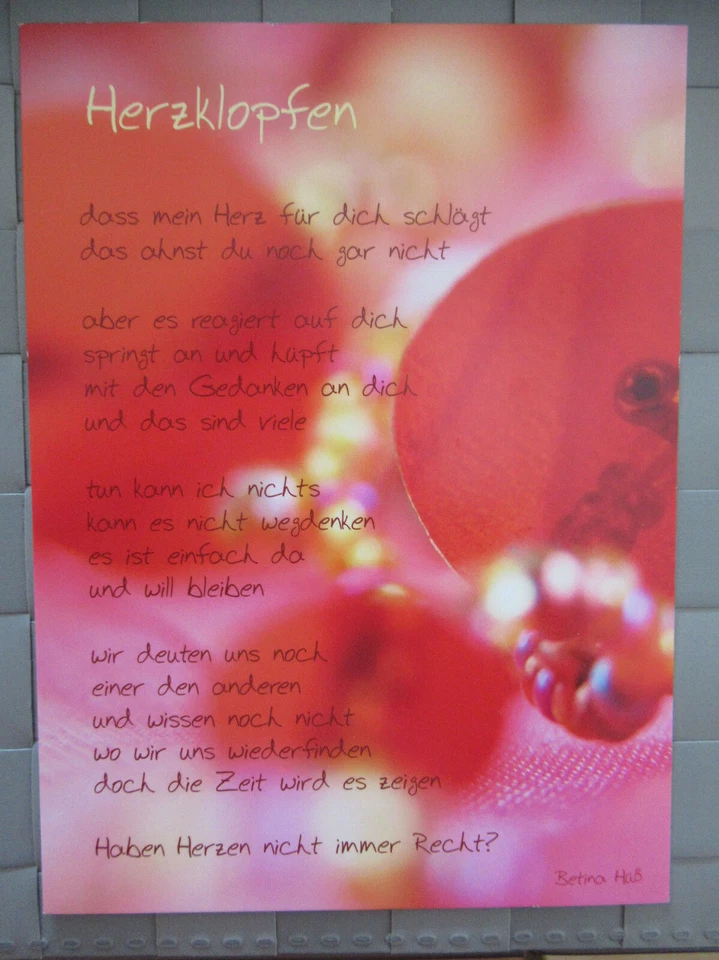 Herzklopfen
dass mein Herz für dich schlägt
das ahnst du noch gar nicht
aber es reagiert auf dich
springt an und hüpft
mit den Gedanken an dich
und das sind viele
tun kann ich nichts
kann es nicht wegdenken
es ist einfach da
und will bleiben
wir deuten uns noch
einer den anderen
und wissen noch nicht
wo wir uns wiederfinden
doch die Zeit wird es zeigen
Haben Herzen nicht immer Recht?
Betina Haß